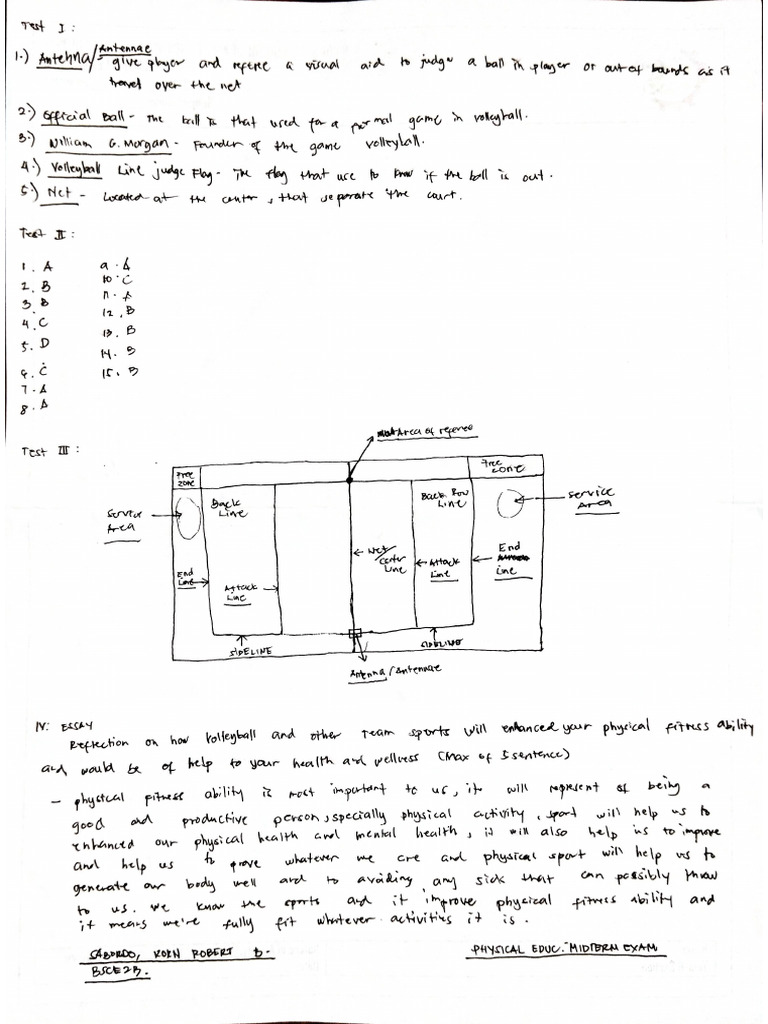 Test I :
1.) Antehna/Antennae - give player and referee a visual aid to judge a ball in player or out of bounds as it
travel over the net
2.) Official Ball - The ball is that used for a normal game in volleyball.
3.) William G. Morgan - Founder of the game volleyball.
4.) Volleyball Line judge Flag - The flag that use to know if the ball is out.
5.) Net - Located at the center, that separate the court.
Test II :
1. A
2. B
3. B
4. C
5. D
6. C
7. A
8. A
9. A
10. C
11. A
12. B
13. B
14. B
15. B
Test III :
Area of referee
Free zone
Free zone
Service Area
Back Line
Back Row Line
Service Area
End Line
Attack Line
Net/Center Line
Attack Line
End Line
SIDELINE
SIDELINE
Antenna / Antennae
IV: ESSAY
Reflection on how Volleyball and other Team sports will enhanced your physical fitness ability
and would be of help to your health and wellness (Max of 5 sentence)
- physical fitness ability is most important to us, it will represent of being a
good and productive person, specially physical activity, sport will help us to
enhanced our physical health and mental health, it will also help us to improve
and help us to prove whatever we are and physical sport will help us to
generate our body well and to avoiding any sick that can possibly throw
to us. We know the sports and it improve physical fitness ability and
it means we're fully fit whatever activities it is.
SABORDO, ROEN ROBERT B.
PHYSICAL EDUC. - MIDTERM EXAM
BSCE2B.